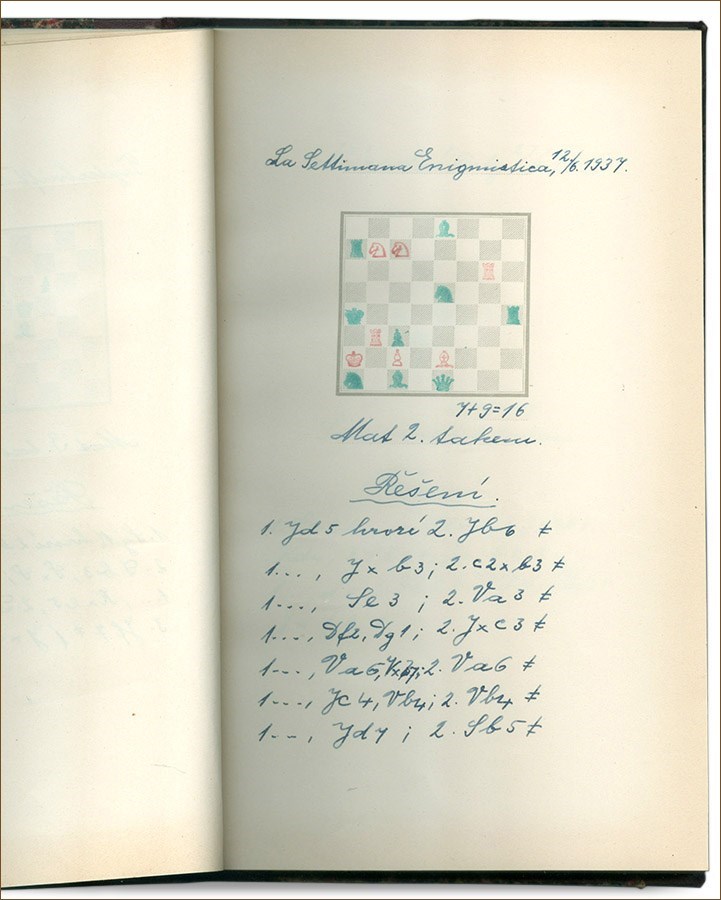 La Settimana Enigmistica, 12/6. 1937.
7+9=16
Mat 2. tahem.
Řešení.
1. Jd5 hrozí 2. Jb6 ≠
1..., J x b3; 2. c2xb3 ≠
1..., Se3 ; 2. Va3 ≠
1..., Df2, Dg1; 2. JxC3 ≠
1..., Va6, ; 2. Va6 ≠
1..., Jc4, Vb4; 2. Vb4 ≠
1..., Jd7 ; 2. Sb5 ≠